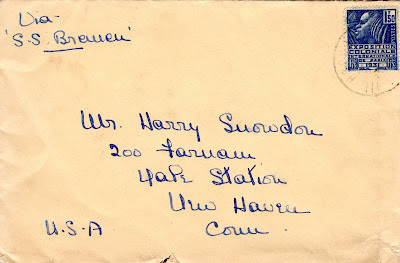 Via-
"S.S. Bremen"
1F50
EXPOSITION
COLONIALE
INTERNATIONALE
DE PARIS
1931
Mr. Harry Snowdon
200 Farnam
Yale Station
New Haven
U.S.A Conn.